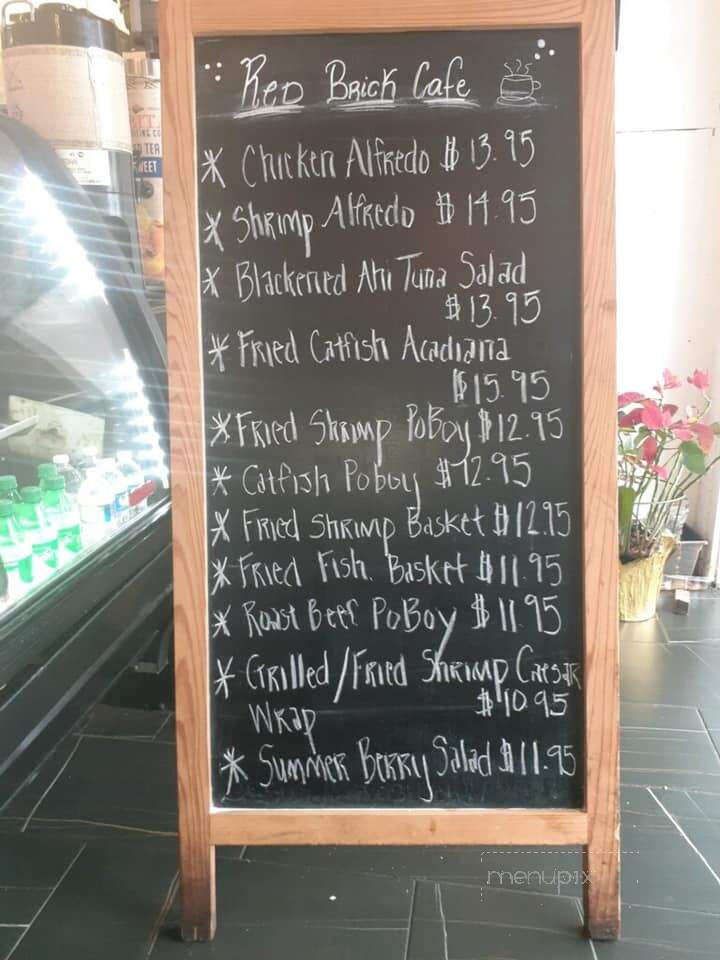 Red Brick Cafe
* Chicken Alfredo $ 13.95
* Shrimp Alfredo $ 14.95
* Blackened Ahi Tuna Salad
$ 13.95
* Fried Catfish Acadiana
$15.95
* Fried Shrimp PoBoy $12.95
* Catfish Poboy $12.95
* Fried Shrimp Basket $12.95
* Fried Fish. Basket $11.95
* Roast Beef PoBoy $11.95
* Grilled/Fried Shrimp Caesar
$10.95
Wrap
* Summer Berry Salad $11.95
TEA
menupix